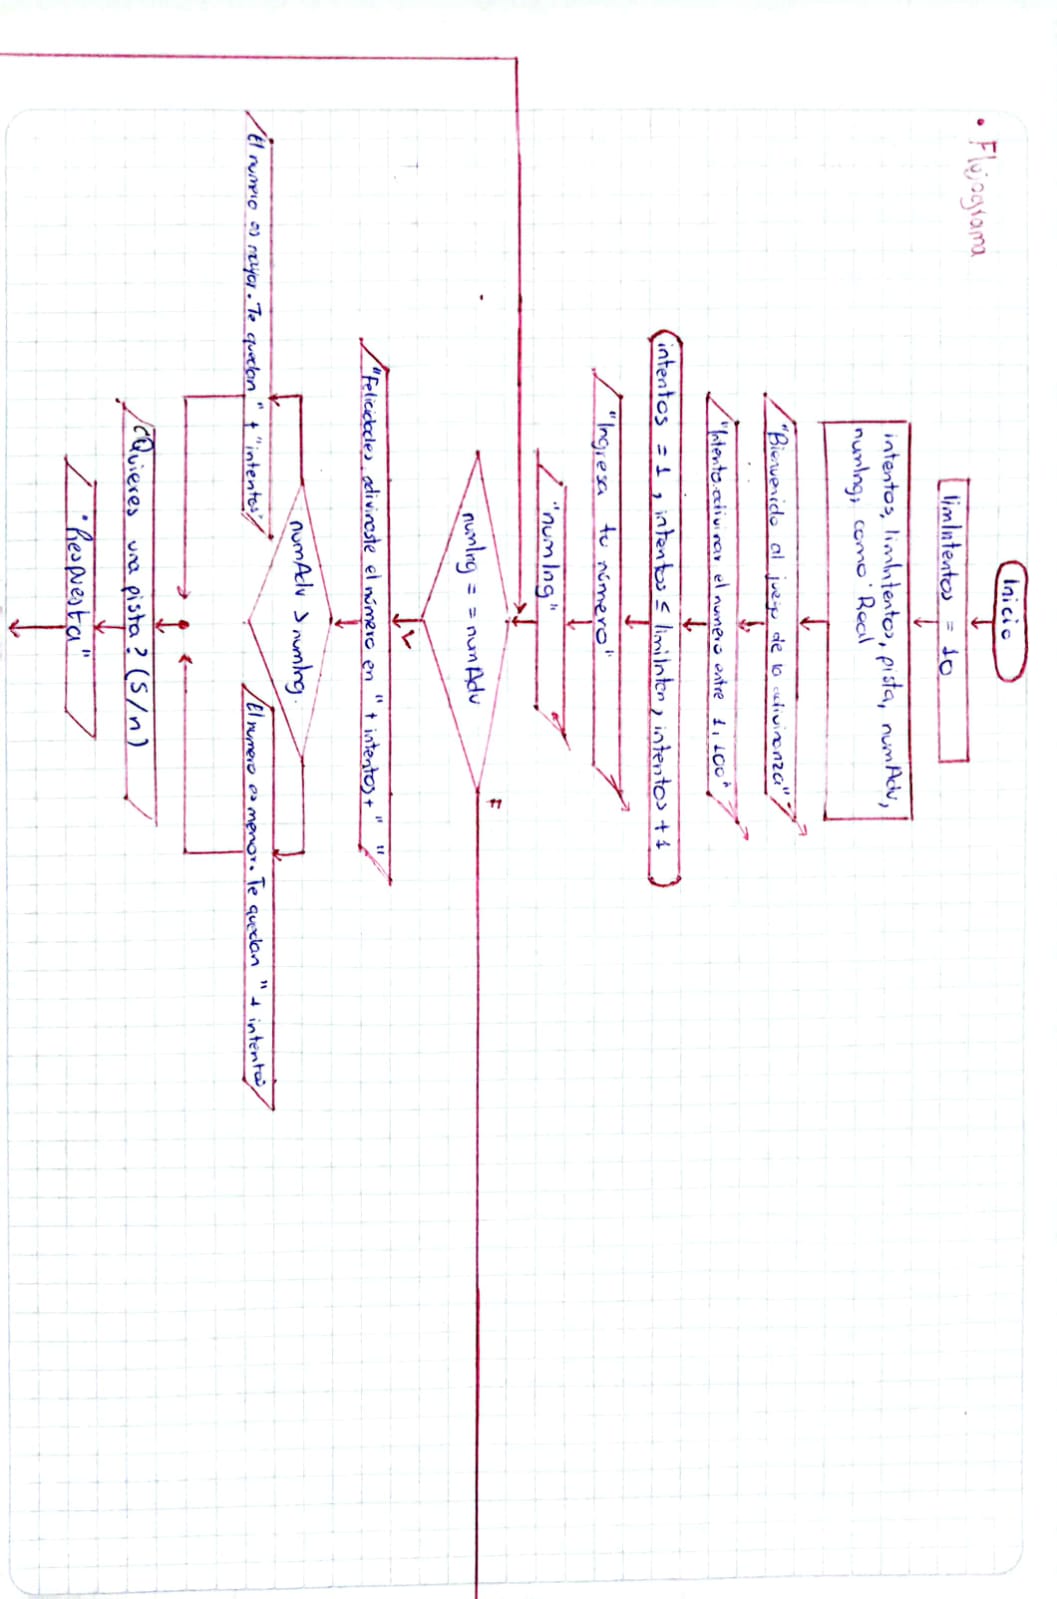 • Flujograma
Inicio
limIntentos = 10
intentos, limIntentos, pista, numAdv,
numIng, como Real
"Bienvenido al juego de la adivinanza"
"Intenta adivinar el numero entre 1, 100"
intentos = 1, intentos ≤ limiInten, intentos +1
"Ingresa tu número"
"numIng"
numIng == numAdv
F
V
"Felicidades, adivinaste el número en " + intentos + " "
numAdv > numIng.
El numero es mayor. Te quedan " + "intentos"
El numero es menor. Te quedan " + intentos
¿Quieres una pista? (S/n)
"Respuesta"